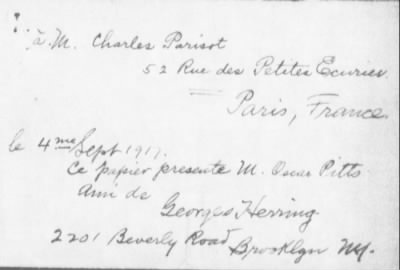 à M. Charles Parisot
52 Rue des Petites Ecuries
Paris, France.
le 4me Sept 1917.
Ce papier presente M. Oscar Pitts
Ami de
Georges Herring
2201 Beverly Road, Brooklyn NY.